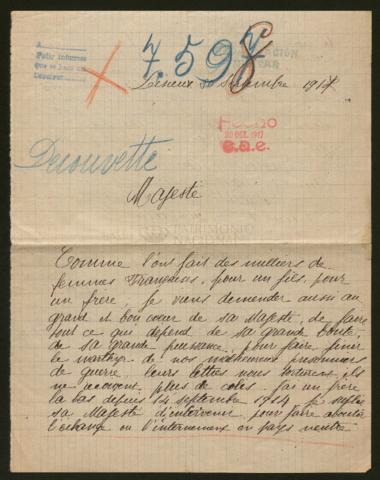 A
Pedir informes
que se hace en
7.598
Lisieux 30 Septembre 1917
HECHO
20 DIC. 1917
e.a.e.
Decouvette
Majesté
Comme l'ont fait des milliers de
femmes Françaises, pour un fils, pour
un frère, je viens demander aussi au
grand et bon coeur de sa Majesté, de faire
tout ce qui dépend de sa grande bonté
de sa grande puissance, pour faire finir
le martyre de nos malheureux prisonniers
de guerre. leurs lettres nous torturent ils
ne reçoivent plus de colis. j'ai un frère
la bas depuis 14 septembre 1914 je supplie
sa Majesté d'intervenir pour faire aboutir
l'échange ou l'internement en pays neutre